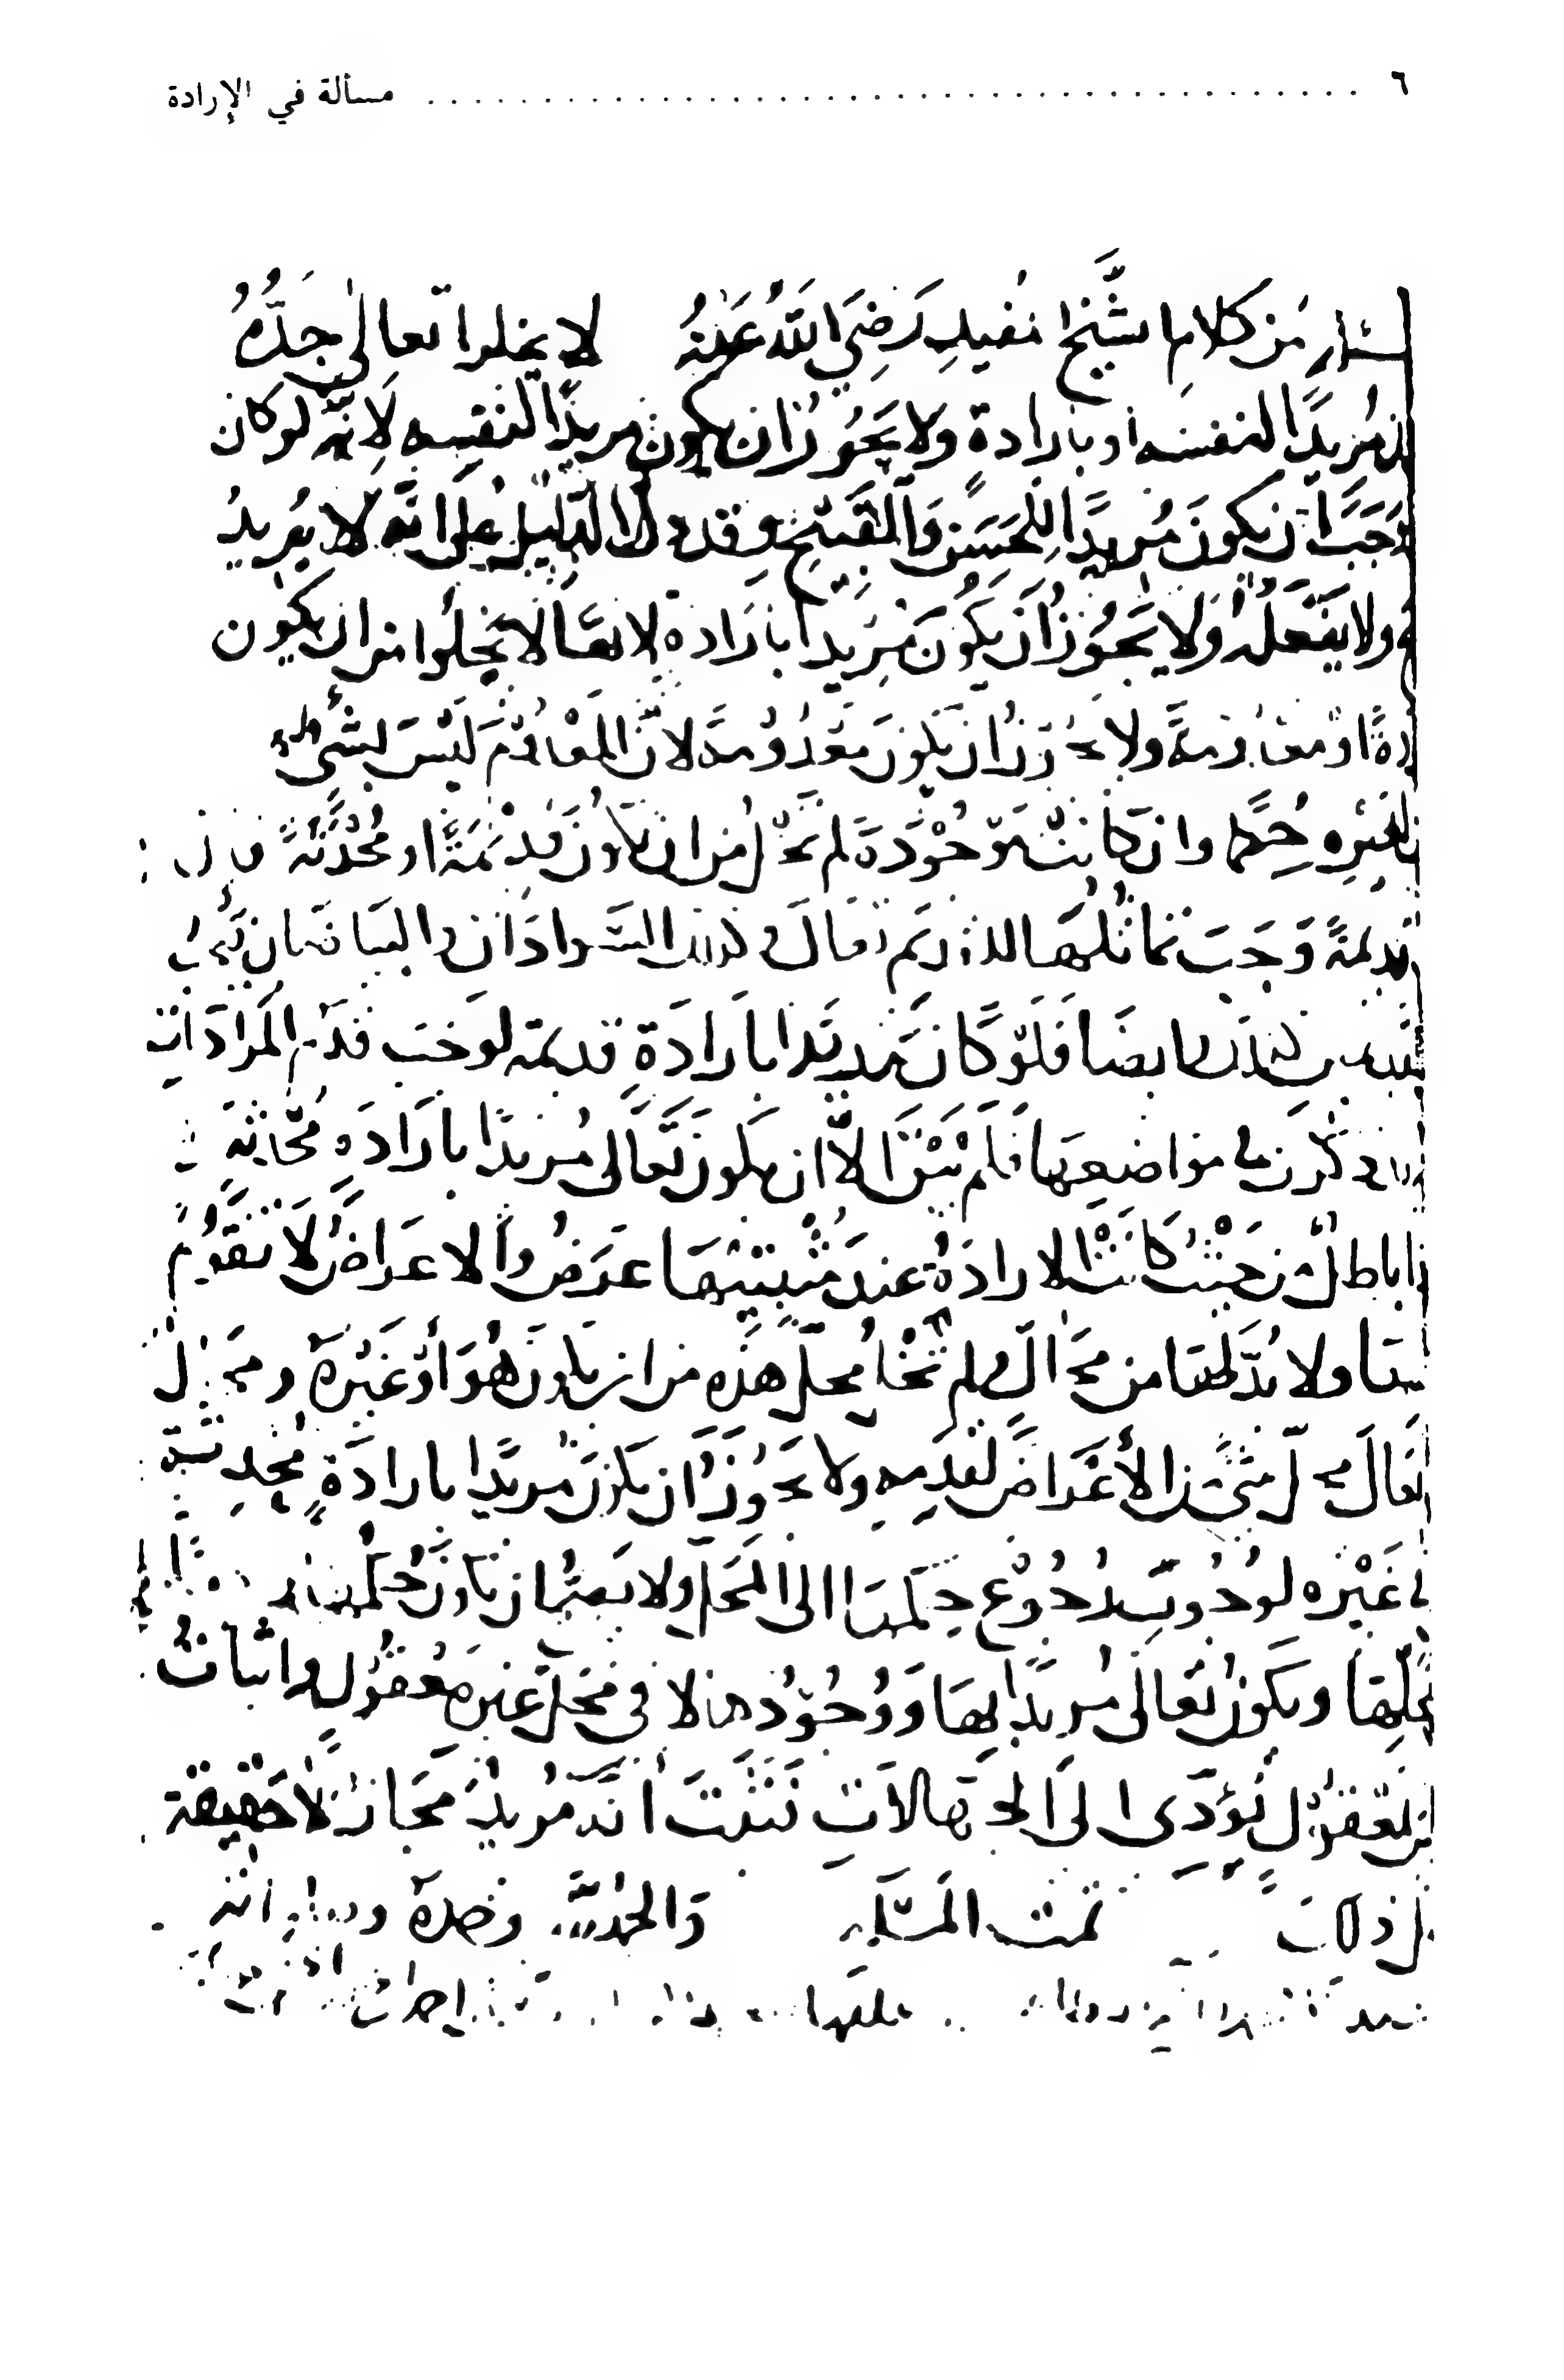 ٦ ........................................ مسألة في الإرادة
من كلام الشيخ المفيد رضي الله عنه لا يخلوا تعالى جده
مريدا لنفسه او بارادة ولا يجوز ان يكون مريدا لنفسه لانه لو كان
وجب ان يكون مريدا للحسن والقبيح وقد دل الدليل على انه لا يريد
ولا يفعله ولا يجوز ان يكون مريدا بارادة لانها لا يخلوا من ان يكون
او معدومة ولا يجوز ان يكون معدومة لان المعدوم ليس بشئ
لغيره حكما وان كانت موجودة لم تخل من ان يكون قديمة او محدثة فان
قديمة وجب تماثلها السوادان والبياضان
ايضا فلو كان مريدا بارادة قديمة لوجب قدم المرادات
في مواضعها فلم يبق الا ان يكون تعالى مريدا بارادة محدثة
باطل من حيث كانت الارادة عند مثبتيها عرض والاعراض لا تقوم
ولا بد لها من محال ولم يخل محل هذه من ان يكون هو او غيره ومحال
محل شئ من الأعراض لقدمه ولا يجوز ان يكون مريدا بارادة محدثة
في غيره لوجوب رجوع حكمها الى المحل ولا ان يكون حكمها
محلها ويكون تعالى مريدا بها ووجودها لا في محل غير معقول واثبات
المعقول يؤدي الى الجهالات فثبت انه مريد مجازا لا حقيقة
ذلك تمت المسئلة والحمد لله وحده